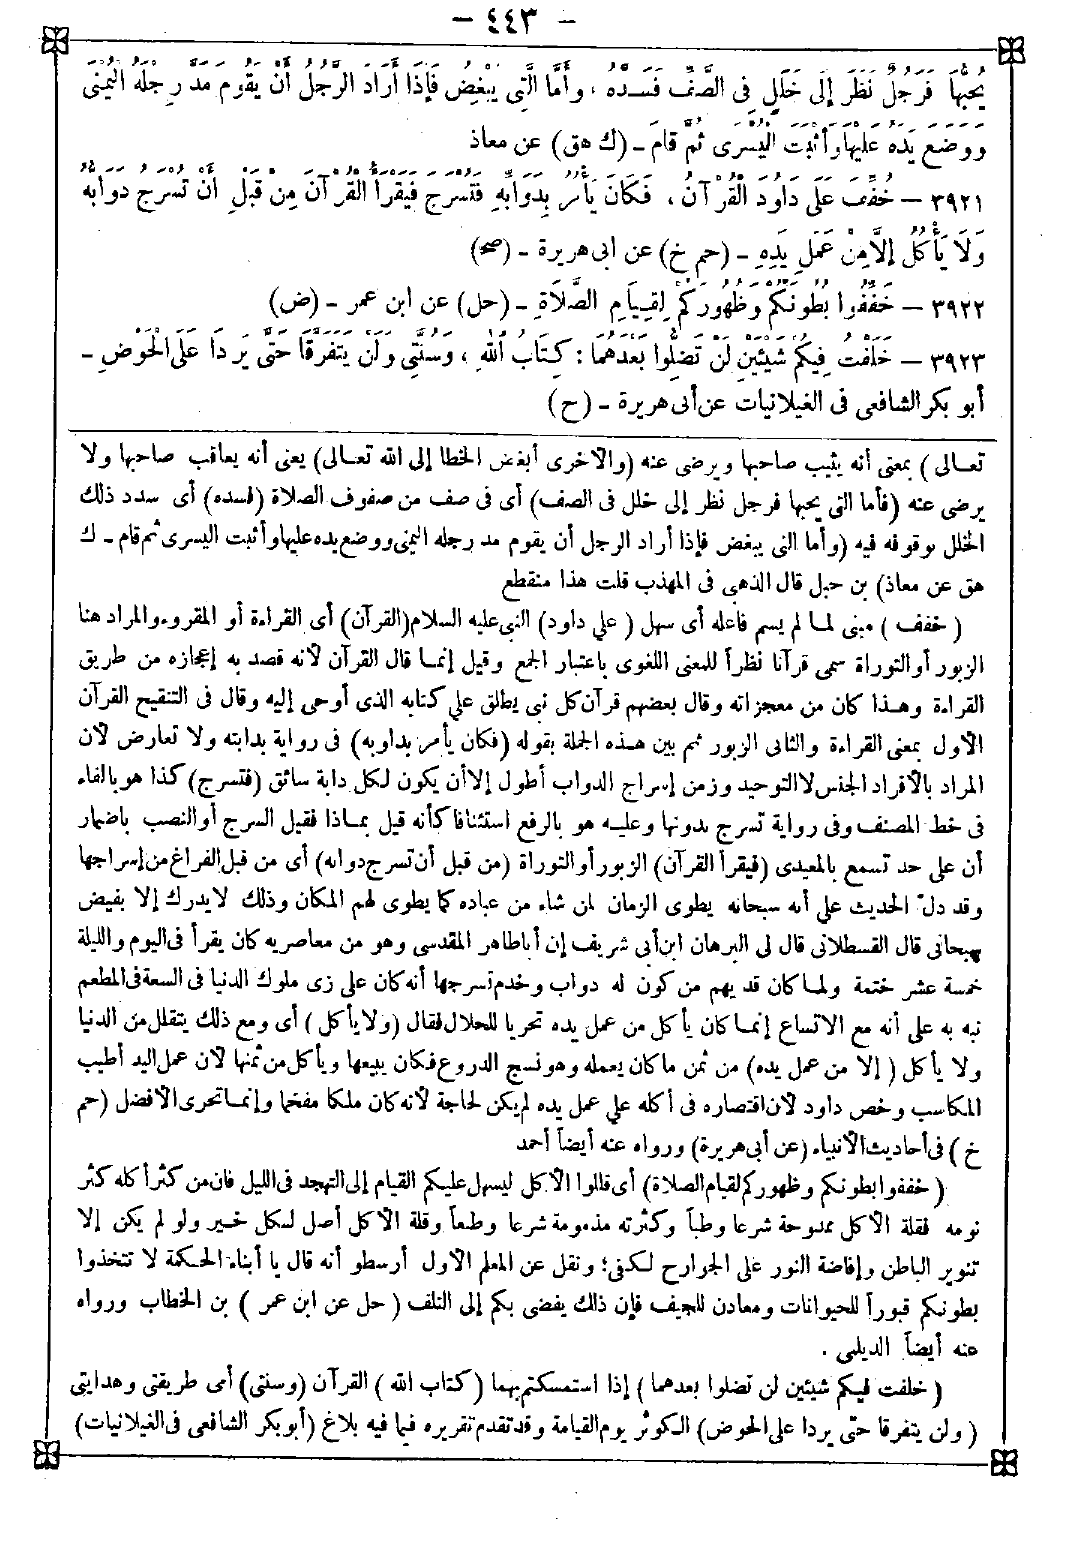 – ٤٤٣ –
يُحِبُّهَا فَرَجُلٌ نَظَرَ إِلَى خَلَلٍ فِى الصَّفِّ فَسَدَّهُ ، وَأَمَّا الَّتِى يُبْغِضُ فَإِذَا أَرَادَ الرَّجُلُ أَنْ يَقُومَ مَدَّ رِجْلَهُ الْيُمْنَى
وَوَضَعَ يَدَهُ عَلَيْهَا وَأَثْبَتَ الْيُسْرَى ثُمَّ قَامَ – (ك هق) عن معاذ
٣٩٢١ – خُفِّفَ عَلَى دَاوُدَ الْقُرْآنُ ، فَكَانَ يَأْمُرُ بِدَوَابِّهِ فَتُسْرَجُ فَيَقْرَأُ الْقُرْآنَ مِنْ قَبْلِ أَنْ تُسْرَجَ دَوَابُّهُ
وَلَا يَأْكُلُ إِلَّا مِنْ عَمَلِ يَدِهِ – (حم خ) عن ابى هريرة – (صح)
٣٩٢٢ – خَفِّفُوا بُطُونَكُمْ وَظُهُورَكُمْ لِقِيَامِ الصَّلَاةِ – (حل) عن ابن عمر – (ض)
٣٩٢٣ – خَلَّفْتُ فِيكُمْ شَيْئَيْنِ لَنْ تَضِلُّوا بَعْدَهُمَا : كِتَابُ اللهِ ، وَسُنَّتِى وَلَنْ يَتَفَرَّقَا حَتَّى يَرِدَا عَلَى الْحَوْضِ –
أبو بكر الشافعى فى الغيلانيات عن أبى هريرة – (ح)
تعالى ) بمعنى أنه يثيب صاحبها ويرضى عنه (والأخرى أبغض الخطا إلى الله تعالى) يعنى أنه يعاقب صاحبها ولا
يرضى عنه (فأما التى يحبها فرجل نظر إلى خلل فى الصف) أى فى صف من صفوف الصلاة (فسده) أى سدد ذلك
الخلل بوقوفه فيه (وأما التى يبغض فإذا أراد الرجل أن يقوم مد رجله اليمنى ووضع يده عليها وأثبت اليسرى ثم قام – ك
هق عن معاذ) بن جبل قال الذهبى فى المهذب قلت هذا منقطع
( خفف ) مبنى لما لم يسم فاعله أى سهل ( على داود) النبى عليه السلام (القرآن) أى القراءة أو المقروء والمراد هنا
الزبور أو التوراة سمى قرآنا نظراً للمعنى اللغوى باعتبار الجمع وقيل إنما قال القرآن لأنه قصد به إعجازه من طريق
القراءة وهذا كان من معجزاته وقال بعضهم قرآن كل نبى يطلق على كتابه الذى أوحى إليه وقال فى التنقيح القرآن
الأول بمعنى القراءة والثانى الزبور ثم بين هذه الجملة بقوله (فكان يأمر بدوابه) فى رواية بدابته ولا تعارض لأن
المراد بالأفراد الجنس لا التوحيد وزمن إسراج الدواب أطول إلا أن يكون لكل دابة سائق (فتسرج) كذا هو بالفاء
فى خط المصنف وفى رواية تسرج بدونها وعليه هو بالرفع استئنافا كأنه قيل بماذا فقيل السرج أو النصب باضمار
أن على حد تسمع بالمعيدى (فيقرأ القرآن) الزبور أو التوراة (من قبل أن تسرج دوابه) أى من قبل الفراغ من إسراجها
وقد دلّ الحديث على أنه سبحانه يطوى الزمان لمن شاء من عباده كما يطوى لهم المكان وذلك لا يدرك إلا بفيض
سبحانى قال القسطلانى قال لى البرهان ابن أبى شريف إن أبا طاهر المقدسى وهو من معاصريه كان يقرأ فى اليوم والليلة
خمسة عشر ختمة ولما كان قد يهم من كون له دواب وخدم تسرجها أنه كان على زى ملوك الدنيا فى السعة فى المطعم
نبه به على أنه مع الاتساع إنما كان يأكل من عمل يده تحريا للحلال فقال (ولا يأكل ) أى ومع ذلك يتقلل من الدنيا
ولا يأكل ( إلا من عمل يده) من ثمن ما كان يعمله وهو نسج الدروع فكان يبيعها ويأكل من ثمنها لأن عمل اليد أطيب
المكاسب وخص داود لأن اقتصاره فى أكله على عمل يده لم يكن لحاجة لأنه كان ملكا مفخما وإنما تحرى الأفضل (حم
خ ) فى أحاديث الأنبياء (عن أبى هريرة) ورواه عنه أيضاً أحمد
( خففوا بطونكم وظهوركم لقيام الصلاة) أى قللوا الأكل ليسهل عليكم القيام إلى التهجد فى الليل فان من كثر أكله كثر
نومه فقلة الأكل ممدوحة شرعا وطباً وكثرته مذمومة شرعا وطبعاً وقلة الأكل أصل لكل خير ولو لم يكن إلا
تنوير الباطن وإفاضة النور على الجوارح لكفى؛ ونقل عن المعلم الأول أرسطو أنه قال يا أبناء الحكمة لا تتخذوا
بطونكم قبوراً للحيوانات ومعادن للجيف فإن ذلك يفضى بكم إلى التلف ( حل عن ابن عمر ) بن الخطاب ورواه
عنه أيضاً الديلمى .
( خلفت فيكم شيئين لن تضلوا بعدهما ) إذا استمسكتم بهما (كتاب الله ) القرآن (وسنتى) أى طريقتى وهدايتى
( ولن يتفرقا حتى يردا على الحوض) الكوثر يوم القيامة وقد تقدم تقريره فيما فيه بلاغ (أبو بكر الشافعى فى الغيلانيات)